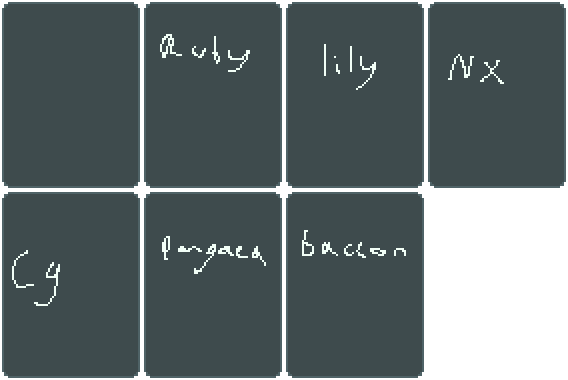 Ruby
lily
NX
Cy
Pangaea
baccon